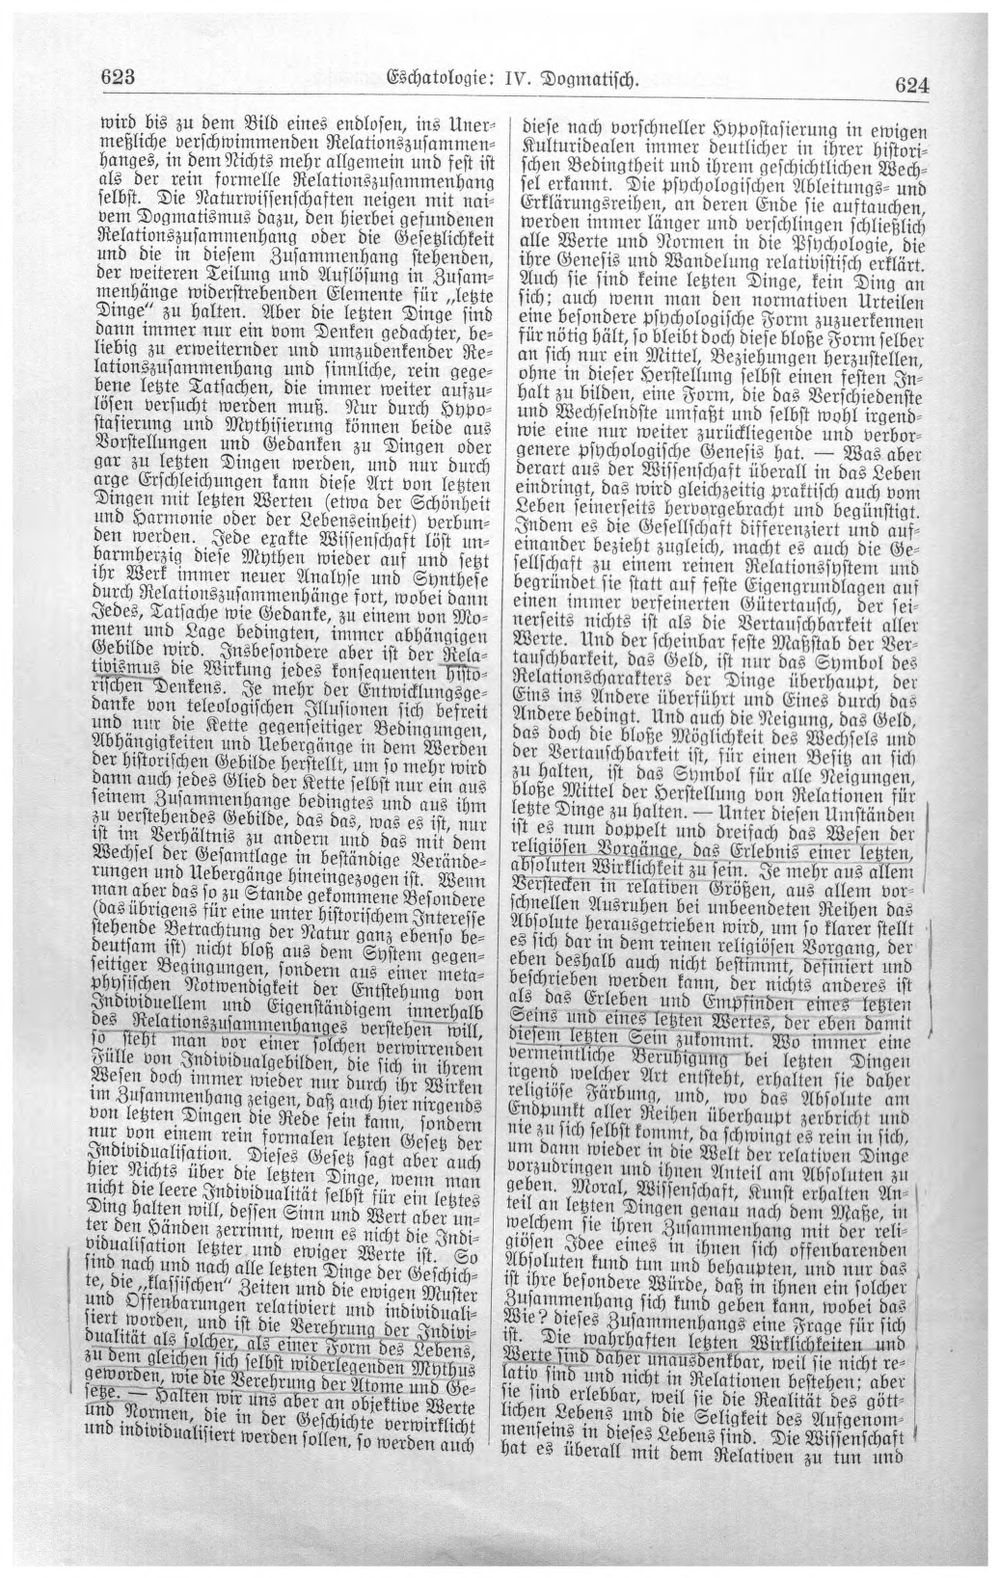 623
Eschatologie: IV. Dogmatisch.
624
wird bis zu dem Bild eines endlosen, ins Uner-
meßliche verschwimmenden Relationszusammen-
hanges, in dem Nichts mehr allgemein und fest ist
als der rein formelle Relationszusammenhang
selbst. Die Naturwissenschaften neigen mit nai-
vem Dogmatismus dazu, den hierbei gefundenen
Relationszusammenhang oder die Gesetzlichkeit
und die in diesem Zusammenhang stehenden,
der weiteren Teilung und Auflösung in Zusam-
menhänge widerstrebenden Elemente für „letzte
Dinge“ zu halten. Aber die letzten Dinge sind
dann immer nur ein vom Denken gedachter, be-
liebig zu erweiternder und umzudenkender Re-
lationszusammenhang und sinnliche, rein gege-
bene letzte Tatsachen, die immer weiter aufzu-
lösen versucht werden muß. Nur durch Hypo-
stasierung und Mythisierung können beide aus
Vorstellungen und Gedanken zu Dingen oder
gar zu letzten Dingen werden, und nur durch
arge Erschleichungen kann diese Art von letzten
Dingen mit letzten Werten (etwa der Schönheit
und Harmonie oder der Lebenseinheit) verbun-
den werden. Jede exakte Wissenschaft löst un-
barmherzig diese Mythen wieder auf und setzt
ihr Werk immer neuer Analyse und Synthese
durch Relationszusammenhänge fort, wobei dann
Jedes, Tatsache wie Gedanke, zu einem von Mo-
ment und Lage bedingten, immer abhängigen
Gebilde wird. Insbesondere aber ist der Rela-
tivismus die Wirkung jedes konsequenten histo-
rischen Denkens. Je mehr der Entwicklungsge-
danke von teleologischen Illusionen sich befreit
und nur die Kette gegenseitiger Bedingungen,
Abhängigkeiten und Uebergänge in dem Werden
der historischen Gebilde herstellt, um so mehr wird
dann auch jedes Glied der Kette selbst nur ein aus
seinem Zusammenhange bedingtes und aus ihm
zu verstehendes Gebilde, das das, was es ist, nur
ist im Verhältnis zu andern und das mit dem
Wechsel der Gesamtlage in beständige Verände-
rungen und Uebergänge hineingezogen ist. Wenn
man aber das so zu Stande gekommene Besondere
(das übrigens für eine unter historischem Interesse
stehende Betrachtung der Natur ganz ebenso be-
deutsam ist) nicht bloß aus dem System gegen-
seitiger Begingungen, sondern aus einer meta-
physischen Notwendigkeit der Entstehung von
Individuellem und Eigenständigem innerhalb
des Relationszusammenhanges verstehen will,
so steht man vor einer solchen verwirrenden
Fülle von Individualgebilden, die sich in ihrem
Wesen doch immer wieder nur durch ihr Wirken
im Zusammenhang zeigen, daß auch hier nirgends
von letzten Dingen die Rede sein kann, sondern
nur von einem rein formalen letzten Gesetz der
Individualisation. Dieses Gesetz sagt aber auch
hier Nichts über die letzten Dinge, wenn man
nicht die leere Individualität selbst für ein letztes
Ding halten will, dessen Sinn und Wert aber un-
ter den Händen zerrinnt, wenn es nicht die Indi-
vidualisation letzter und ewiger Werte ist. So
sind nach und nach alle letzten Dinge der Geschich-
te, die „klassischen“ Zeiten und die ewigen Muster
und Offenbarungen relativiert und individuali-
siert worden, und ist die Verehrung der Indivi-
dualität als solcher, als einer Form des Lebens,
zu dem gleichen sich selbst widerlegenden Mythus
geworden, wie die Verehrung der Atome und Ge-
setze. — Halten wir uns aber an objektive Werte
und Normen, die in der Geschichte verwirklicht
und individualisiert werden sollen, so werden auch
diese nach vorschneller Hypostasierung in ewigen
Kulturidealen immer deutlicher in ihrer histori-
schen Bedingtheit und ihrem geschichtlichen Wech-
sel erkannt. Die psychologischen Ableitungs- und
Erklärungsreihen, an deren Ende sie auftauchen,
werden immer länger und verschlingen schließlich
alle Werte und Normen in die Psychologie, die
ihre Genesis und Wandelung relativistisch erklärt.
Auch sie sind keine letzten Dinge, kein Ding an
sich; auch wenn man den normativen Urteilen
eine besondere psychologische Form zuzuerkennen
für nötig hält, so bleibt doch diese bloße Form selber
an sich nur ein Mittel, Beziehungen herzustellen,
ohne in dieser Herstellung selbst einen festen In-
halt zu bilden, eine Form, die das Verschiedenste
und Wechselndste umfaßt und selbst wohl irgend-
wie eine nur weiter zurückliegende und verbor-
genere psychologische Genesis hat. — Was aber
derart aus der Wissenschaft überall in das Leben
eindringt, das wird gleichzeitig praktisch auch vom
Leben seinerseits hervorgebracht und begünstigt.
Indem es die Gesellschaft differenziert und auf-
einander bezieht zugleich, macht es auch die Ge-
sellschaft zu einem reinen Relationssystem und
begründet sie statt auf feste Eigengrundlagen auf
einen immer verfeinerten Gütertausch, der sei-
nerseits nichts ist als die Vertauschbarkeit aller
Werte. Und der scheinbar feste Maßstab der Ver-
tauschbarkeit, das Geld, ist nur das Symbol des
Relationscharakters der Dinge überhaupt, der
Eins ins Andere überführt und Eines durch das
Andere bedingt. Und auch die Neigung, das Geld,
das doch die bloße Möglichkeit des Wechsels und
der Vertauschbarkeit ist, für einen Besitz an sich
zu halten, ist das Symbol für alle Neigungen,
bloße Mittel der Herstellung von Relationen für
letzte Dinge zu halten. — Unter diesen Umständen
ist es nun doppelt und dreifach das Wesen der
religiösen Vorgänge, das Erlebnis einer letzten,
absoluten Wirklichkeit zu sein. Je mehr aus allem
Verstecken in relativen Größen, aus allem vor-
schnellen Ausruhen bei unbeendeten Reihen das
Absolute herausgetrieben wird, um so klarer stellt
es sich dar in dem reinen religiösen Vorgang, der
eben deshalb auch nicht bestimmt, definiert und
beschrieben werden kann, der nichts anderes ist
als das Erleben und Empfinden eines letzten
Seins und eines letzten Wertes, der eben damit
diesem letzten Sein zukommt. Wo immer eine
vermeintliche Beruhigung bei letzten Dingen
irgend welcher Art entsteht, erhalten sie daher
religiöse Färbung, und, wo das Absolute am
Endpunkt aller Reihen überhaupt zerbricht und
nie zu sich selbst kommt, da schwingt es rein in sich,
um dann wieder in die Welt der relativen Dinge
vorzudringen und ihnen Anteil am Absoluten zu
geben. Moral, Wissenschaft, Kunst erhalten An-
teil an letzten Dingen genau nach dem Maße, in
welchem sie ihren Zusammenhang mit der reli-
giösen Idee eines in ihnen sich offenbarenden
Absoluten kund tun und behaupten, und nur das
ist ihre besondere Würde, daß in ihnen ein solcher
Zusammenhang sich kund geben kann, wobei das
Wie? dieses Zusammenhangs eine Frage für sich
ist. Die wahrhaften letzten Wirklichkeiten und
Werte sind daher unausdenkbar, weil sie nicht re-
lativ sind und nicht in Relationen bestehen; aber
sie sind erlebbar, weil sie die Realität des gött-
lichen Lebens und die Seligkeit des Aufgenom-
menseins in dieses Lebens sind. Die Wissenschaft
hat es überall mit dem Relativen zu tun und